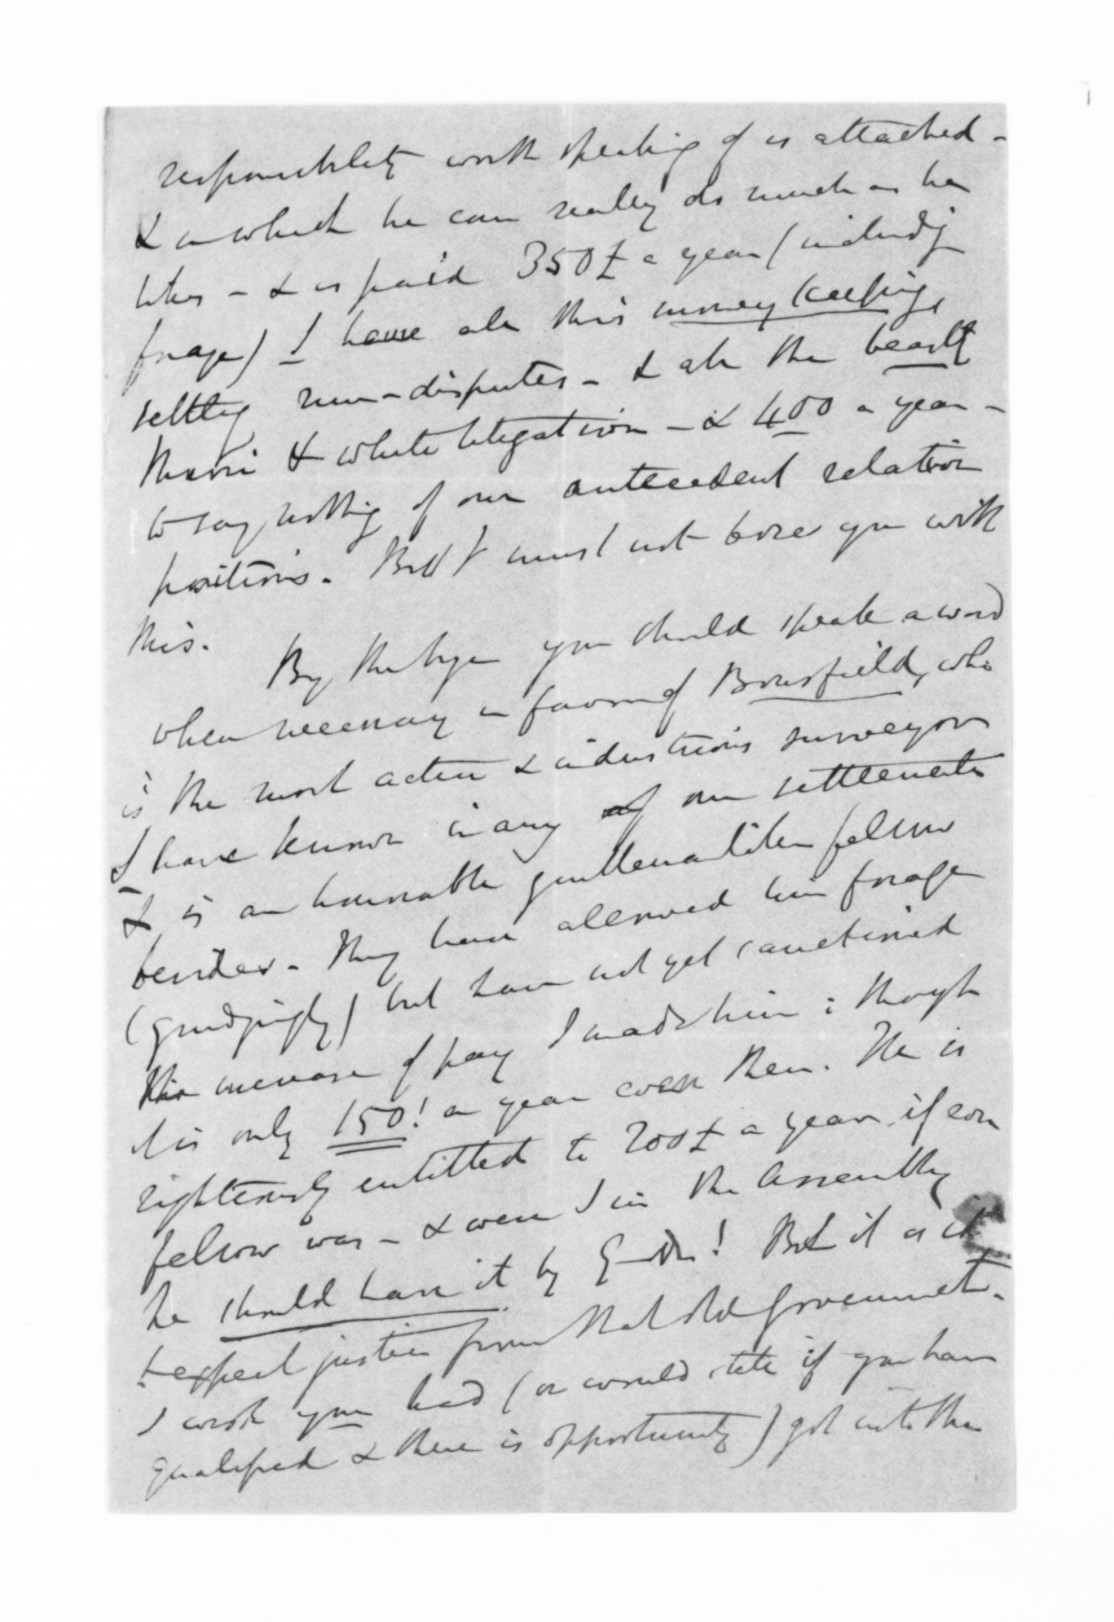 responsibility worth speaking of is attached -
& in which he can really do much as he
likes - & is paid 350£ a year (including
forage) I have all this money keeping,
settling run-disputes - & all the beastly
Maori & white litigation - & 400 a year -
to say nothing of our antecedent relation
positions. But I must not bore you with
this.
By the bye you should speak a word
when necessary in favour of Bousfield, who
is the most active & industrious surveyor
I have known in any of our settlements
& is an honourable gentlemanlike fellow
besides. They have allowed him forage
(grudgingly) but have not yet sanctioned
the increase of pay I made him; though
it is only 150! a year even then. He is
righteously entitled to 200£ a year if ever
fellow was - & were I in the Assembly
he should have it by G-d! But it is
to expect justice from that old Government.
I wish you had (or would still if you have
qualified & there is opportunity) got into the